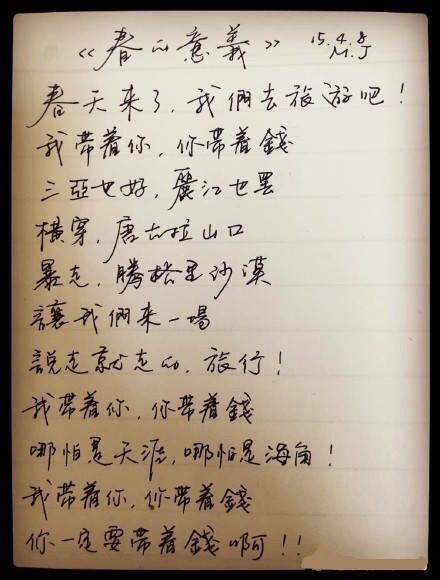 《春的意義》 15.4.8
M.J
春天来了，我們去旅游吧！
我带着你，你带着錢
三亞也好，麗江也罢
横穿，唐古拉山口
暴走，腾格里沙漠
讓我們来一場
説走就走的，旅行！
我带着你，你带着錢
哪怕是天涯，哪怕是海角！
我带着你，你带着錢
你一定要带着錢啊！！